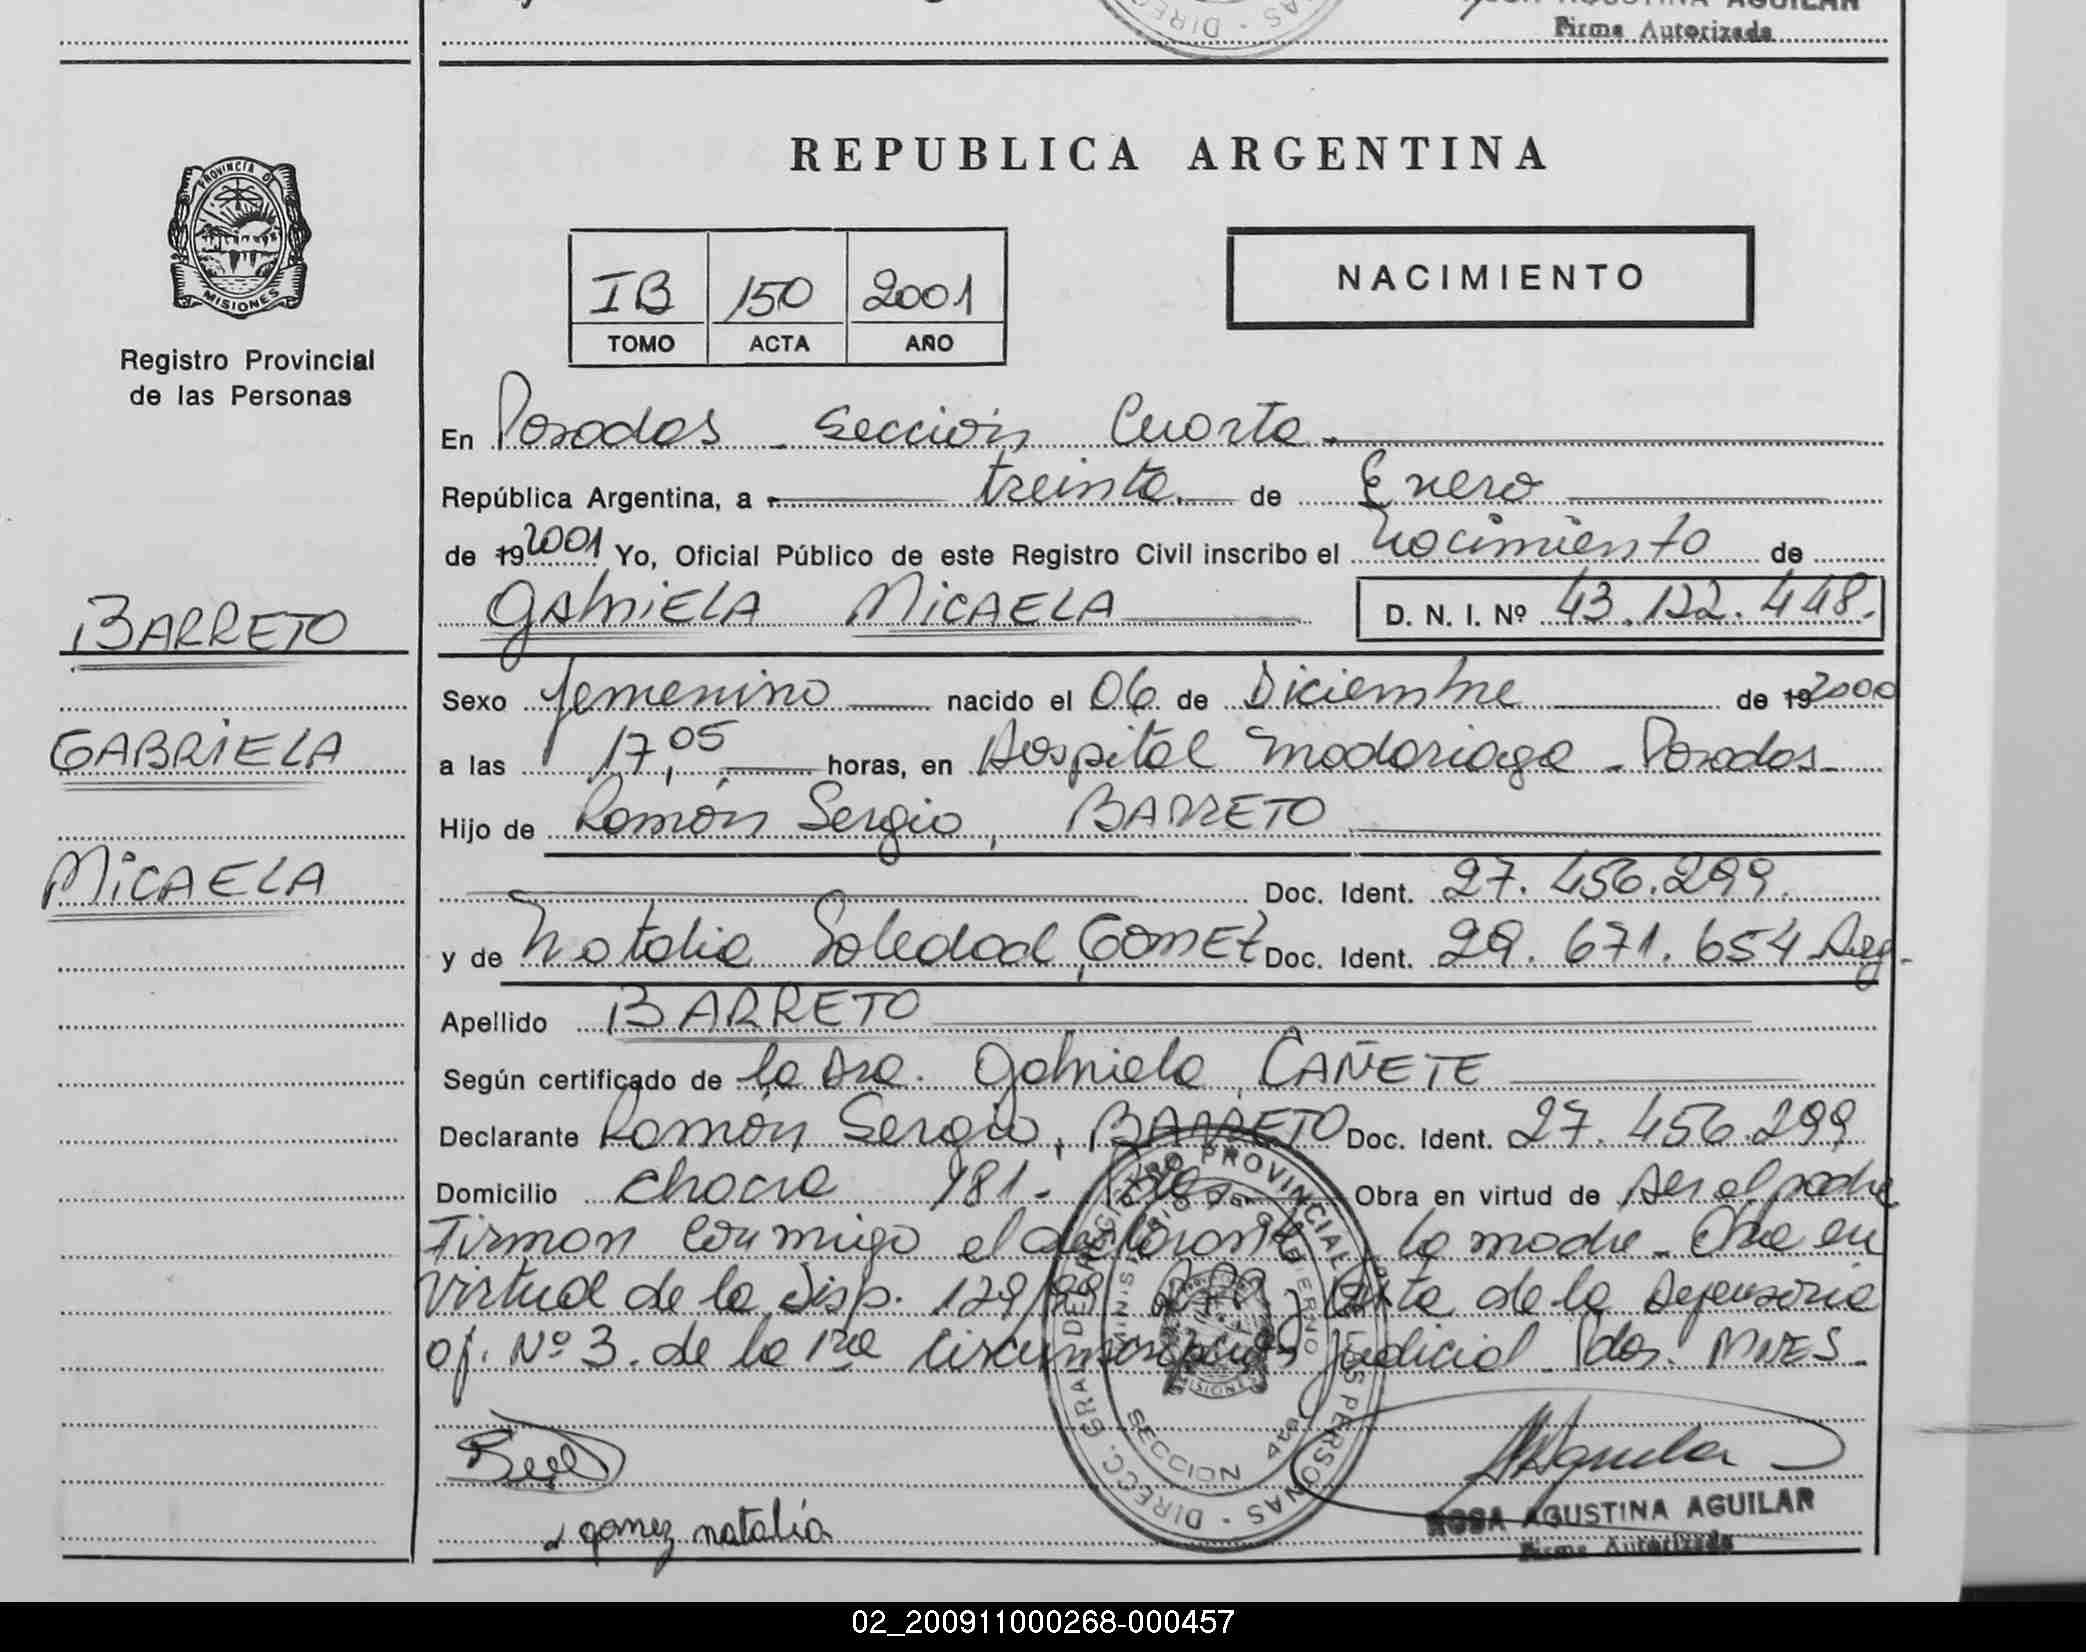 AGUSTINA AGUILAR
Firma Autorizada
PROVINCIA DE
MISIONES
Registro Provincial
de las Personas
BARRETO
GABRIELA
MICAELA
REPUBLICA ARGENTINA
IB 150 2001
TOMO ACTA AÑO
NACIMIENTO
En Posadas - Sección Cuarta
República Argentina, a treinta de Enero
de 19 2001 Yo, Oficial Público de este Registro Civil inscribo el Nacimiento de
Gabriela MICAELA D. N. I. Nº 43.122.448.
Sexo femenino nacido el 06 de Diciembre de 19 2000
a las 17,05 horas, en Hospital Madariaga - Posadas -
Hijo de Ramón Sergio, BARRETO
Doc. Ident. 27.456.299.
y de Natalia Soledad, GOMEZ Doc. Ident. 29.671.654 Arg.
Apellido BARRETO
Según certificado de la Dra. Gabriela, CAÑETE
Declarante Ramón Sergio, BARRETO Doc. Ident. 27.456.299
Domicilio chacra 181 - Pdas Obra en virtud de ser el padre
Firman conmigo el declarante y la madre - Obra en
virtud de la Disp. 129/99 Nota de la Defensoría
of. Nº 3. de la 1ra Circunscripción Judicial Pdas. MNES -
DIRECC. GRAL. DEL REGISTRO PROVINCIAL DE LAS PERSONAS
MINISTERIO DE GOBIERNO
MISIONES
SECCION 4ta
gomez natalia
ROSA AGUSTINA AGUILAR
Firma Autorizada
02_200911000268-000457